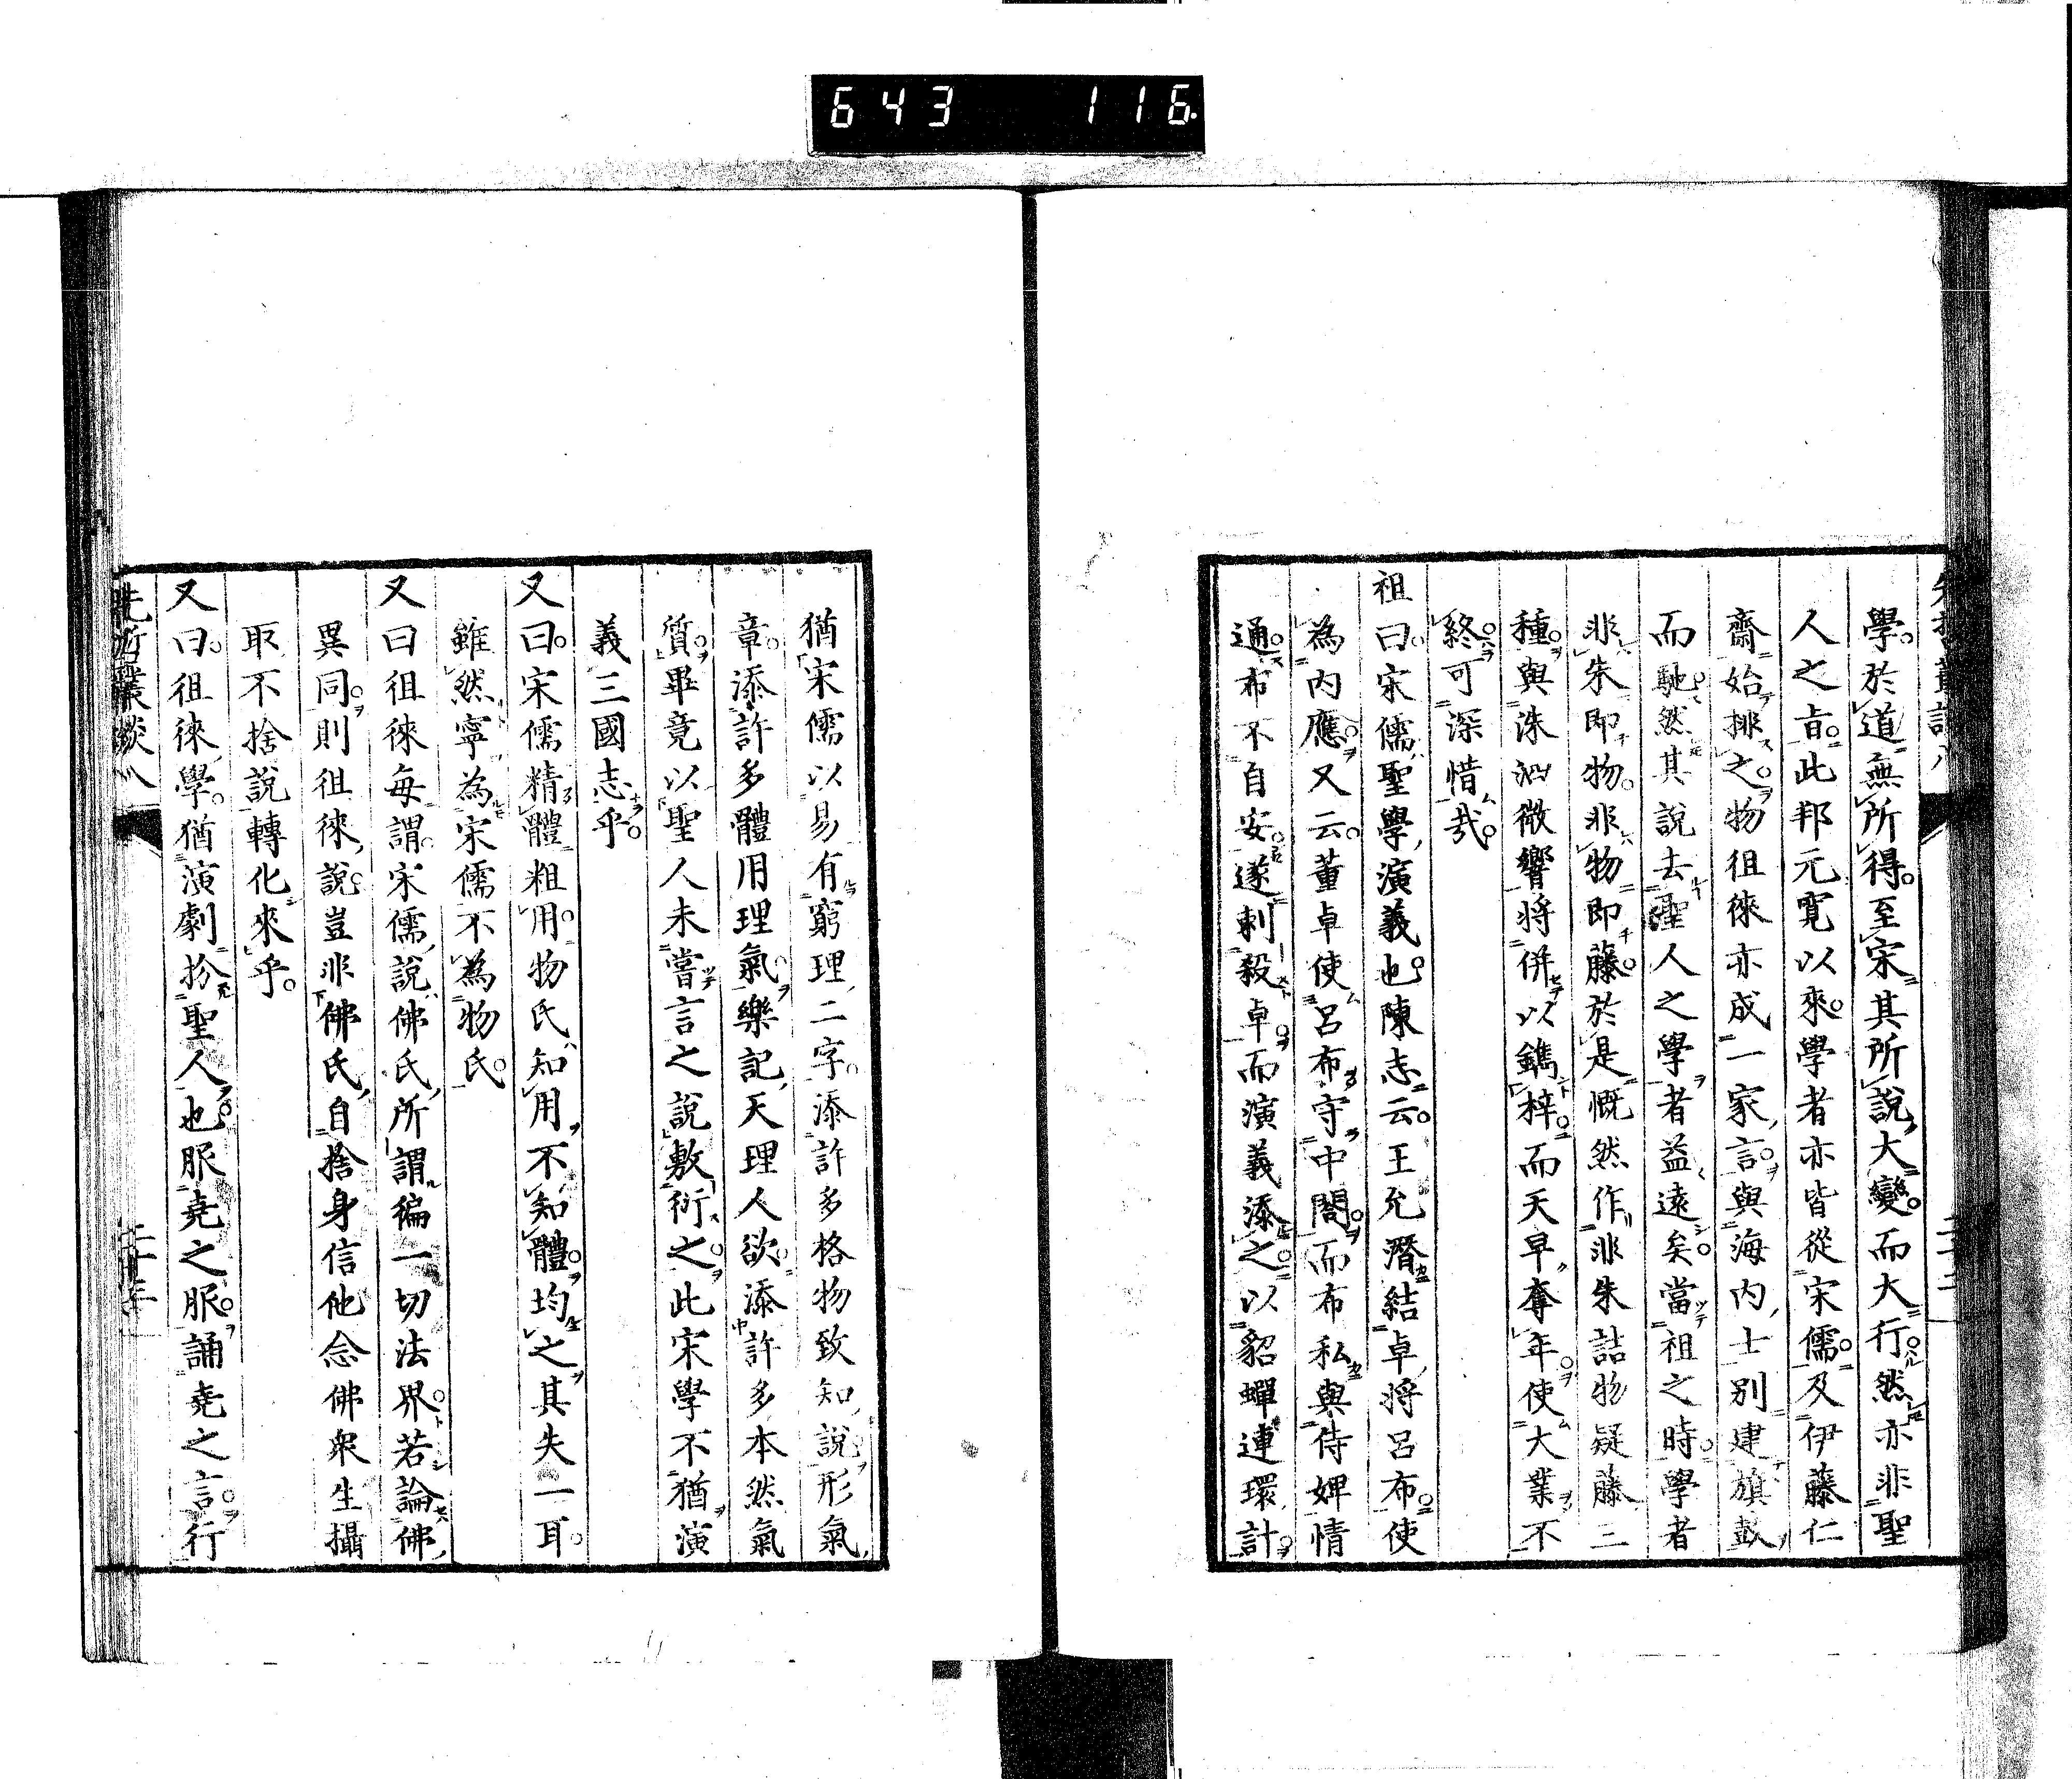 643 116
學於道無所得至宋其所說大變而大行然亦非聖
人之旨此邦元寬以來學者亦皆從宋儒及伊藤仁
齋始排之物徂徠亦成一家言與海內士別建旗鼓
而馳然其說去聖人之學者益遠矣當祖之時學者
非朱即物非物即藤於是慨然作非朱詰物疑藤三
種與洙泗微響將併以鐫梓而天早奪年使大業不
終可深惜哉
祖曰宋儒聖學演義也陳志云王允潛結卓將呂布使
為內應又云董卓使呂布守中閤而布私與侍婢情
通布不自安遂刺殺卓而演義添之以貂蟬連環計
猶宋儒以易有窮理二字添許多格物致知說形氣
章添許多體用理氣樂記天理人欲添許多本然氣
質畢竟以聖人未嘗言之說敷衍之此宋學不猶演
義三國志乎
又曰宋儒精體粗用物氏知用不知體均之其失一耳
雖然寧為宋儒不為物氏
又曰徂徠每謂宋儒說佛氏所謂徧一切法界若論佛
異同則徂徠說豈非佛氏自捨身信他念佛衆生攝
取不捨說轉化來乎
又曰徂徠學猶演劇扮聖人也服堯之服誦堯之言行
先哲叢談八